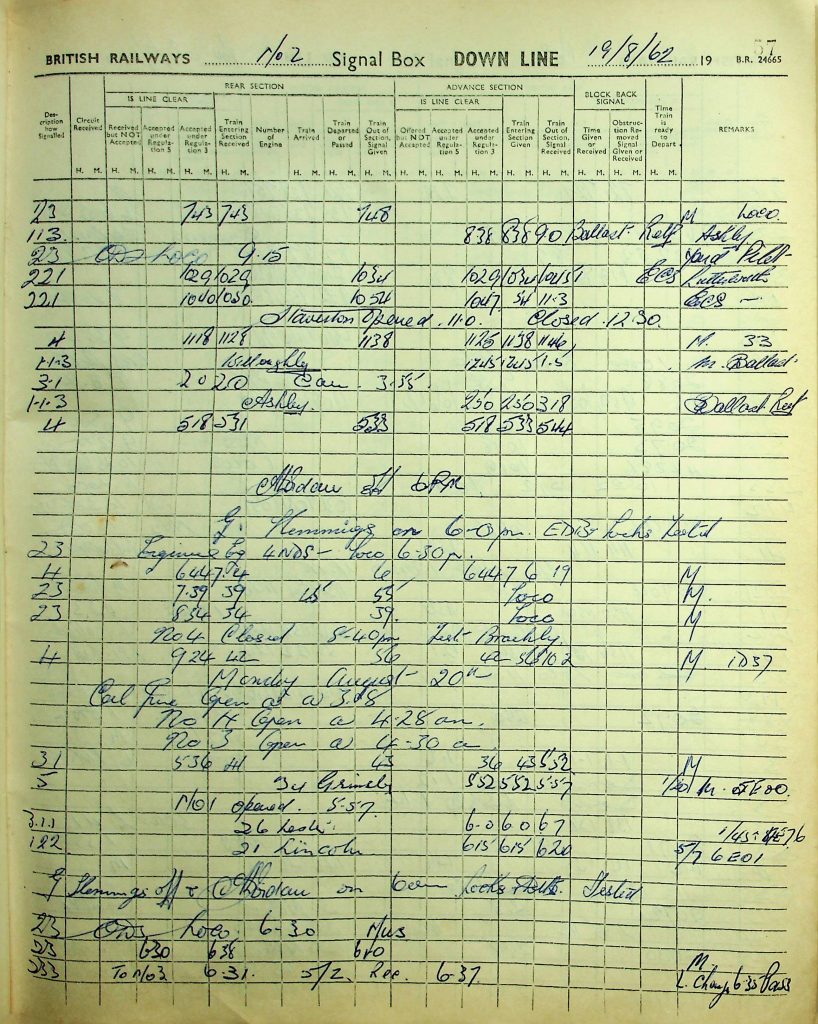 57
BRITISH RAILWAYS No2 Signal Box DOWN LINE 19/8/62 19 B.R. 24665
REAR SECTION ADVANCE SECTION BLOCK BACK SIGNAL
IS LINE CLEAR IS LINE CLEAR
Description how Signalled Circuit Received Received but NOT Accepted Accepted under Regulation 5 Accepted under Regulation 3 Train Entering Section Received Number of Engine Train Arrived Train Departed or Passed Train Out of Section, Signal Given Offered but NOT Accepted Accepted under Regulation 5 Accepted under Regulation 3 Train Entering Section Given Train Out of Section, Signal Received Time Given or Received Obstruction Removed Signal Given or Received Time Train is ready to Depart REMARKS
H. M. H. M. H. M. H. M. H. M. H. M. H. M. H. M. H. M. H. M. H. M. H. M. H. M. H. M. H. M. H. M.
23 743 743 748 M Loco.
113. 838 838 90 Ballast Ashley
23 Loco 9.15
221 1029 1029 1034 1029 1034 1045 ECS
221 1040 1050. 1054 1047 54 11.3 ECS —
Staverton Opened. 11.0. Closed. 12.30.
4 1118 1128 1138 1125 1138 1146 M. 33
1-1-3 Willoughby 1245 1245 1.5 M. Ballast.
3-1 20 20 3.55.
1-1-3 Ashley. 250 250 318 Ballast
4 518 531 533 518 533 544
off 6PM
G. Hemmings on 6-0pm. Locks Tested
23 Engine 4NDS- Loco 6-30p.
4 644 7.4 6 644 7 6 19 M
23 7.39 39 45 55 Loco M.
23 834 34 39. Loco M
No 4 Closed 8-40pm Test Brackly.
4 924 42 56 42 56 10 2 M. 1D37
Monday August 20th
Open at 3.18
No 4 Open a 4-28 am.
No 3 Open a 4-30 a
31 536 41 43 36 43 552 M
5 34 Grimsby 552 552 557 M.
No1 opened. 5-57.
3.1.1 26 6-0 60 67
122 21 Lincoln 615 615 620 5/7 6E01
G Hemmings off & on 6am Locks Tested
23 Loco. 6-30
23 630 638 640
333 To No3 6-31. 5/2. Rec. 6-37. M. 6-35 Pass